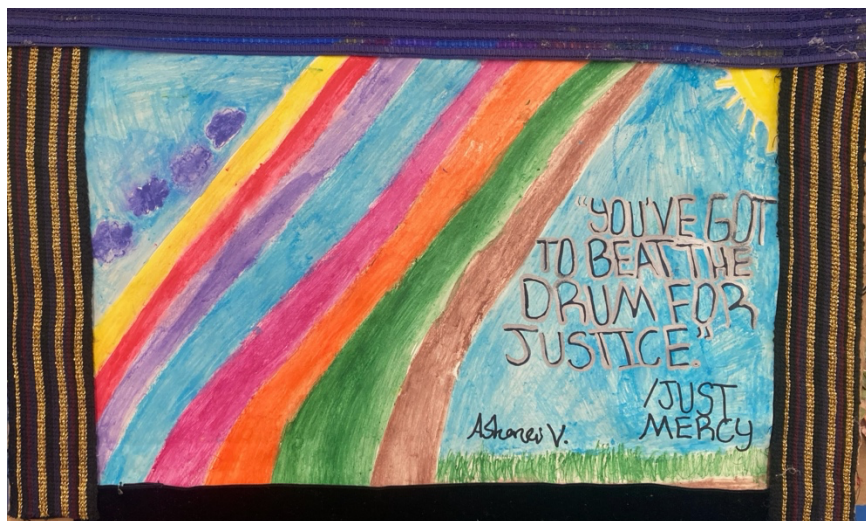 "YOU'VE GOT
TO BEAT THE
DRUM FOR
JUSTICE."
/JUST
MERCY
V.